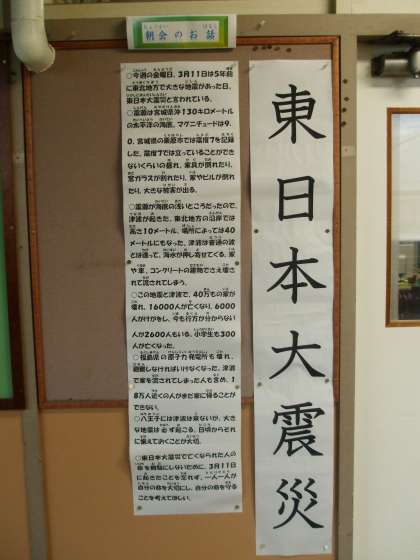 朝会のお話
○今週の金曜日、3月11日は5年前
に東北地方で大きな地震があった日。
東日本大震災と言われている。
○震源は宮城県沖130キロメートル
の太平洋の海底。マグニチュードは9.
0。宮城県の栗原市では震度7を記録
した。震度7では立っていることができ
ないくらいの揺れ。家具が倒れたり、
窓ガラスが割れたり、家やビルが倒れ
たり、大きな被害が出る。
○震源が海底の浅いところだったので、
津波が起きた。東北地方の沿岸では
高さ10メートル、場所によっては40
メートルにもなった。津波は普通の波
とは違って、海水が押し寄せてくる。家
や車、コンクリートの建物でさえ壊さ
れて流されてしまう。
○この地震と津波で、40万もの家が
壊れ、16000人が亡くなり、6000
人がけがをし、今も行方が分からない
人が2600人もいる。小学生も300
人が亡くなった。
○福島県の原子力発電所も壊れ、
避難しなければいけなくなった。津波
で家を流されてしまった人も含め、1
8万人近くの人がまだ家に帰ることが
できない。
○八王子には津波は来ないが、大き
な地震は必ず起こる。日頃からそれ
に備えておくことが大切。
○東日本大震災で亡くなられた人の
命を無駄にしないために、3月11日
に起きたことを忘れず、一人一人が
自分の命を大切にし、自分の命を守る
ことを考えてほしい。
東日本大震災